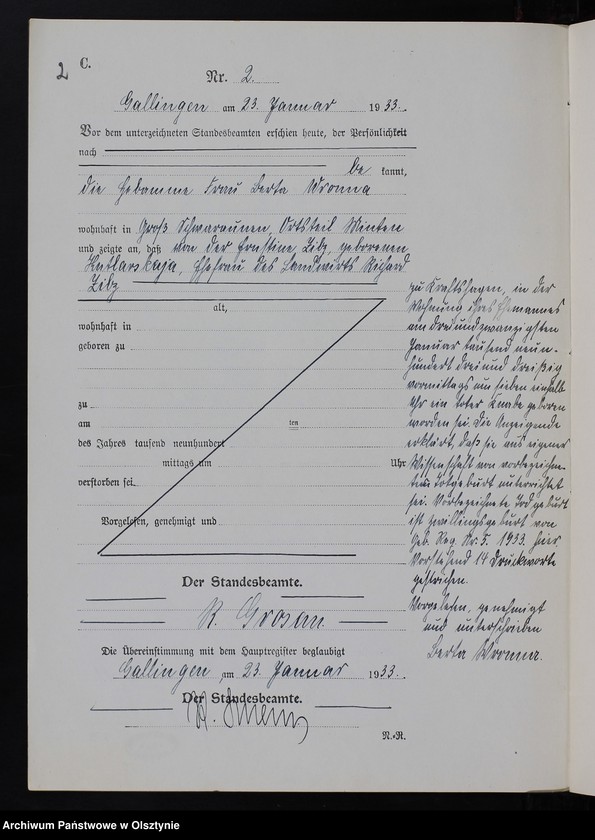 2
C.
Nr. 2.
Gallingen am 23. Januar 1933.
Vor dem unterzeichneten Standesbeamten erschien heute, der Persönlichkeit
nach
be kannt,
die Hebamme Frau Berta Wronna
wohnhaft in Groß Schwaraunen, Ortsteil Minten
und zeigte an, daß von der Ernstine Zilz, geborenen
Kutlarskaja, Ehefrau des Landwirts Richard
Zilz
alt,
wohnhaft in
geboren zu
zu
am ten
des Jahres tausend neunhundert
mittags um Uhr
verstorben sei.
Vorgelesen, genehmigt und
zu Kraftshagen, in der
Wohnung ihres Ehemannes
am dreiundzwanzigsten
Januar tausend neun-
hundert drei und dreißig
vormittags um sieben einhalb
Uhr ein toter Knabe geboren
worden sei. Die Anzeigende
erklärt daß sie aus eigener
Wissenschaft von vorbezeichne-
ter Totgeburt unterrichtet
sei. Vorbezeichnete Todgeburt
ist Zwillingsgeburt von
Geb. Reg. Nr. 5. 1933. hier
Vorstehend 14 Druckworte
gestrichen.
Vorgelesen, genehmigt
und unterschrieben
Berta Wronna.
Der Standesbeamte.
R. Grosan
Die Übereinstimmung mit dem Hauptregister beglaubigt
Gallingen am 23. Januar 1933.
Der Standesbeamte.
N.-R.
Archiwum Państwowe w Olsztynie